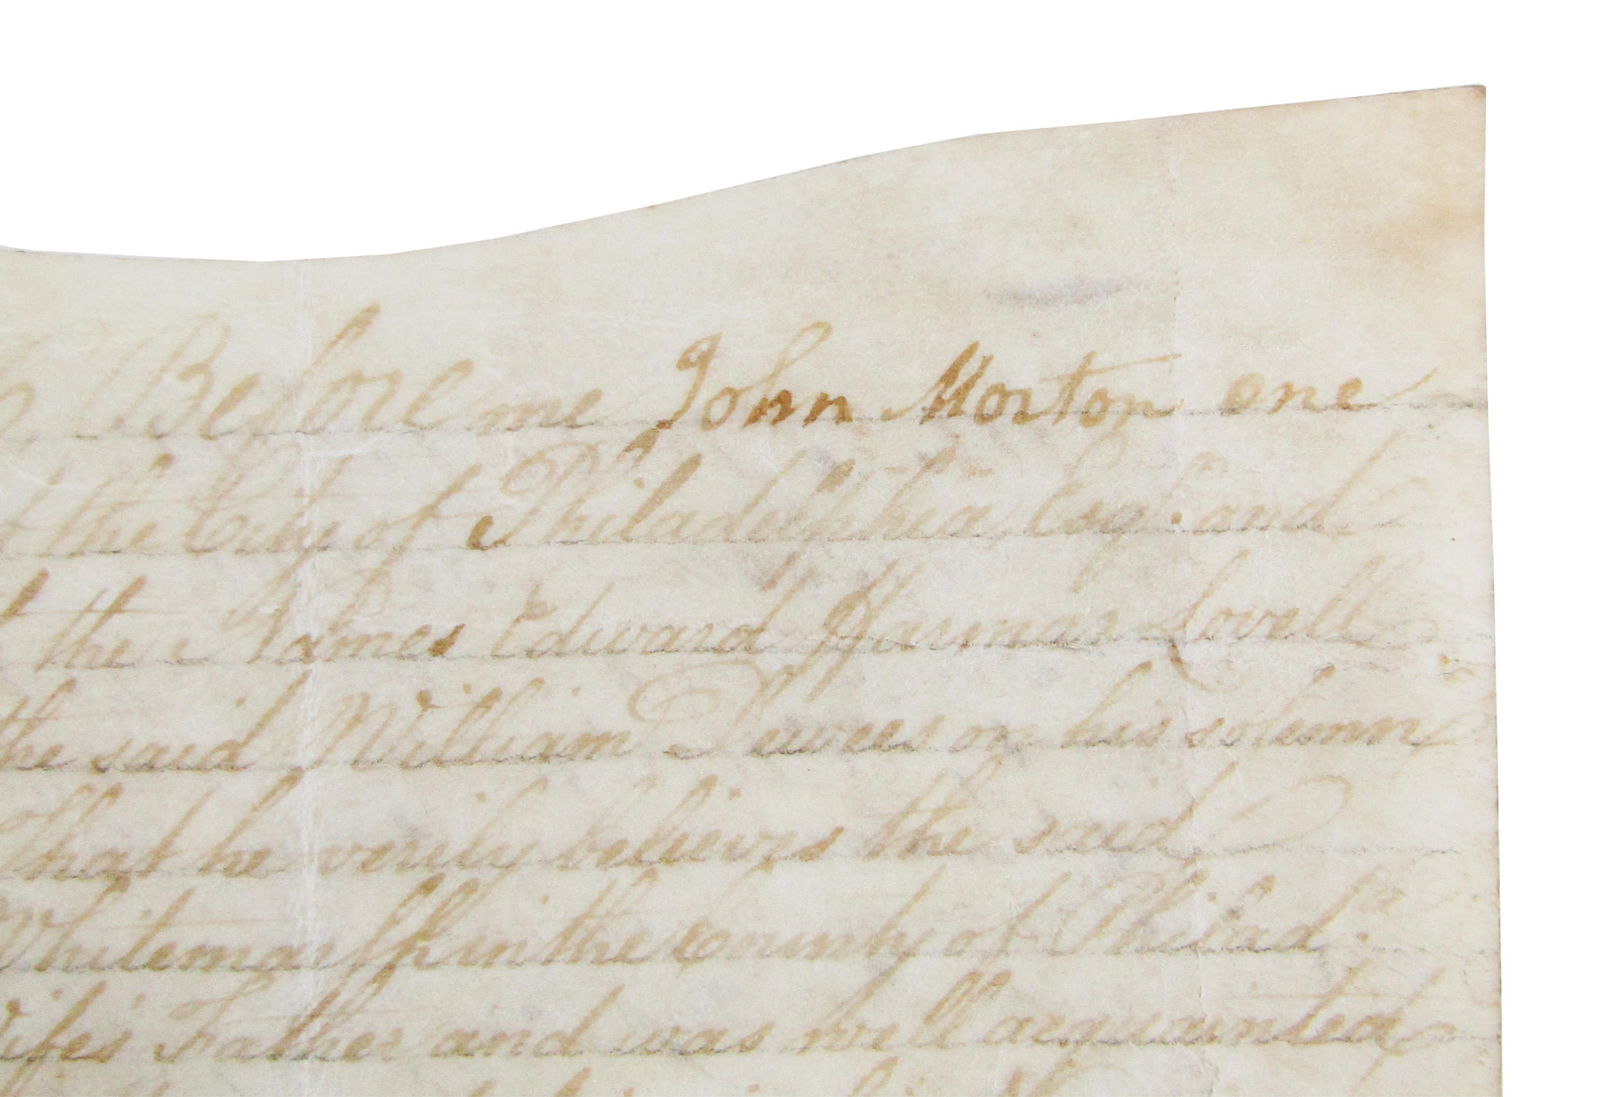 Before me John Morton one
the City of Philadelphia Esqr. and
the Names Edward Harman Lovell
the said William Dewees on his solemn
that he verily believes the said
Whitemarsh in the County of Philada.
Wife's Father and was well acquainted